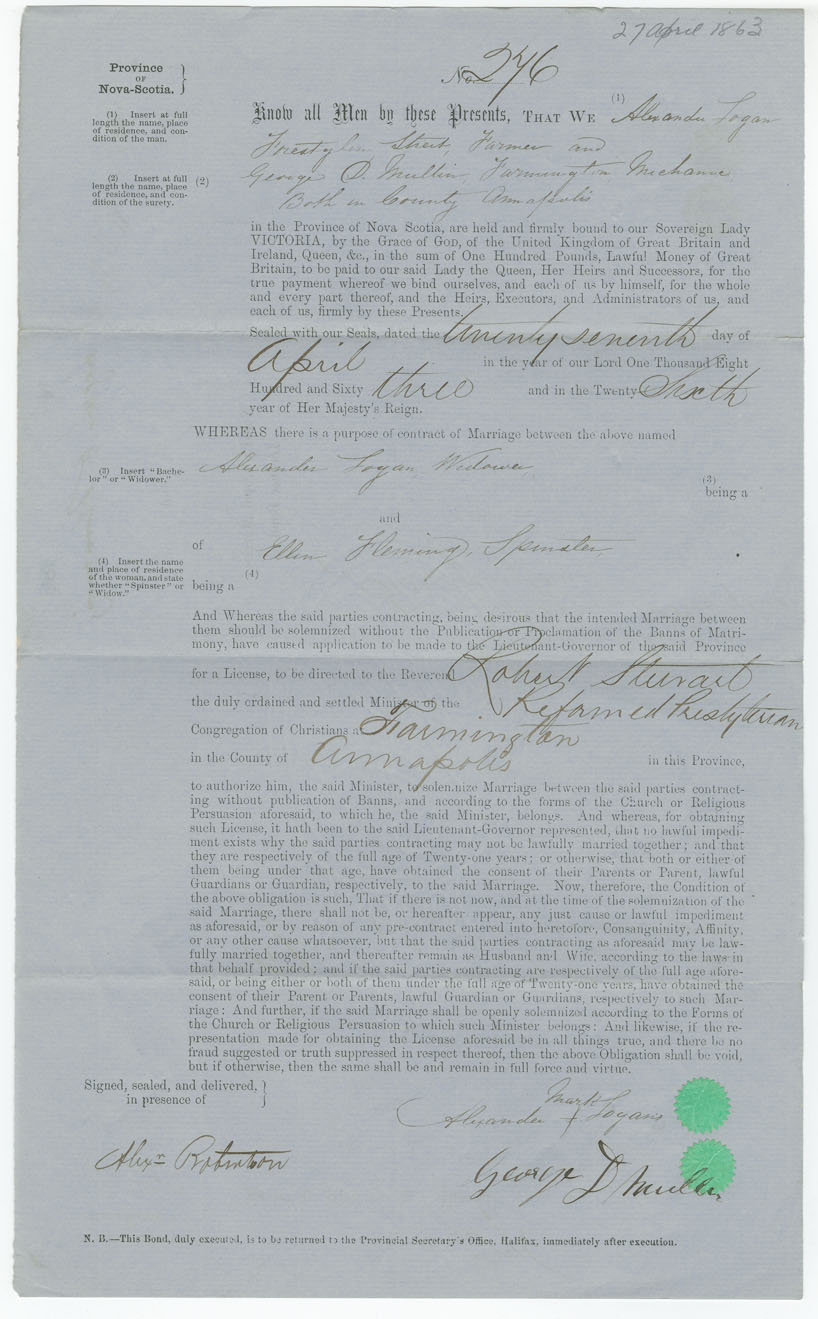 27 April 1863
Province
OF
Nova-Scotia.
No. 276
(1) Insert at full
length the name, place
of residence, and con-
dition of the man.
Know all Men by these Presents, THAT WE (1) Alexander Logan
Street, Farmer and
(2) Insert at full
length the name, place
of residence, and con-
dition of the surety.
(2) George D. Mullin, Farmington Mechanic
Both in County Annapolis
in the Province of Nova Scotia, are held and firmly bound to our Sovereign Lady
VICTORIA, by the Grace of GOD, of the United Kingdom of Great Britain and
Ireland, Queen, &c., in the sum of One Hundred Pounds, Lawful Money of Great
Britain, to be paid to our said Lady the Queen, Her Heirs and Successors, for the
true payment whereof we bind ourselves, and each of us by himself, for the whole
and every part thereof, and the Heirs, Executors, and Administrators of us, and
each of us, firmly by these Presents.
Sealed with our Seals, dated the twenty seventh day of
April in the year of our Lord One Thousand Eight
Hundred and Sixty three and in the Twenty Sixth
year of Her Majesty's Reign.
WHEREAS there is a purpose of contract of Marriage between the above named
(3) Insert "Bache-
lor" or "Widower."
Alexander Logan, Widower
(3)
being a
and
of Ellen Fleming, Spinster
(4) Insert the name
and place of residence
of the woman, and state
whether "Spinster" or
"Widow."
(4)
being a
And Whereas the said parties contracting, being desirous that the intended Marriage between
them should be solemnized without the Publication or Proclamation of the Banns of Matri-
mony, have caused application to be made to the Lieutenant-Governor of the said Province
for a License, to be directed to the Reverend Robert Stewart
the duly ordained and settled Minister of the Reformed Presbyterian
Congregation of Christians at Farmington
in the County of Annapolis in this Province,
to authorize him, the said Minister, to solemnize Marriage between the said parties contract-
ing without publication of Banns, and according to the forms of the Church or Religious
Persuasion aforesaid, to which he, the said Minister, belongs. And whereas, for obtaining
such License, it hath been to the said Lieutenant-Governor represented, that no lawful impedi-
ment exists why the said parties contracting may not be lawfully married together; and that
they are respectively of the full age of Twenty-one years; or otherwise, that both or either of
them being under that age, have obtained the consent of their Parents or Parent, lawful
Guardians or Guardian, respectively, to the said Marriage. Now, therefore, the Condition of
the above obligation is such, That if there is not now, and at the time of the solemnization of the
said Marriage, there shall not be, or hereafter appear, any just cause or lawful impediment
as aforesaid, or by reason of any pre-contract entered into heretofore, Consanguinity, Affinity,
or any other cause whatsoever, but that the said parties contracting as aforesaid may be law-
fully married together, and thereafter remain as Husband and Wife, according to the laws in
that behalf provided; and if the said parties contracting are respectively of the full age afore-
said, or being either or both of them under the full age of Twenty-one years, have obtained the
consent of their Parent or Parents, lawful Guardian or Guardians, respectively to such Mar-
riage: And further, if the said Marriage shall be openly solemnized according to the Forms of
the Church or Religious Persuasion to which such Minister belongs: And likewise, if the re-
presentation made for obtaining the License aforesaid be in all things true, and there be no
fraud suggested or truth suppressed in respect thereof, then the above Obligation shall be void,
but if otherwise, then the same shall be and remain in full force and virtue.
Signed, sealed, and delivered,
in presence of
Mark
Alexander + Logans
Alexr Robertson
George D Mullin
N. B.—This Bond, duly executed, is to be returned to the Provincial Secretary's Office, Halifax, immediately after execution.